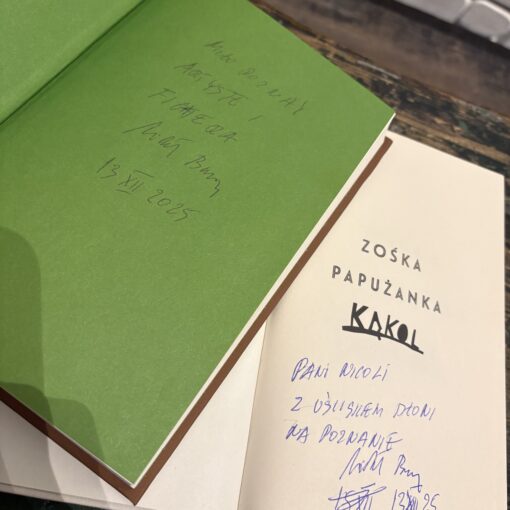 MIŁO POZNAĆ
ARTYSTĘ I
13 XII 2025
ZOŚKA
PAPUŻANKA
KĄKOL
PANI NICOLI
Z UŚCISKIEM DŁONI
NA POZNANIE
13 XII 25